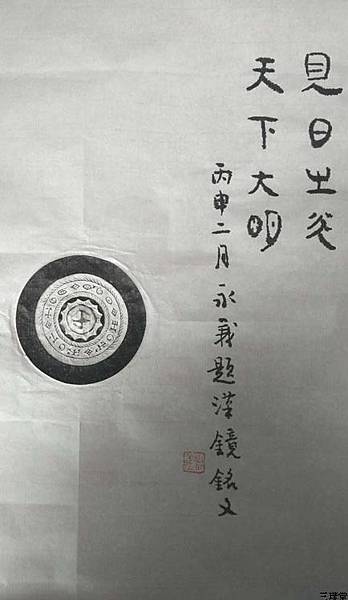 見日之光
天下大明
丙申二月永義題漢鏡銘文
三理堂